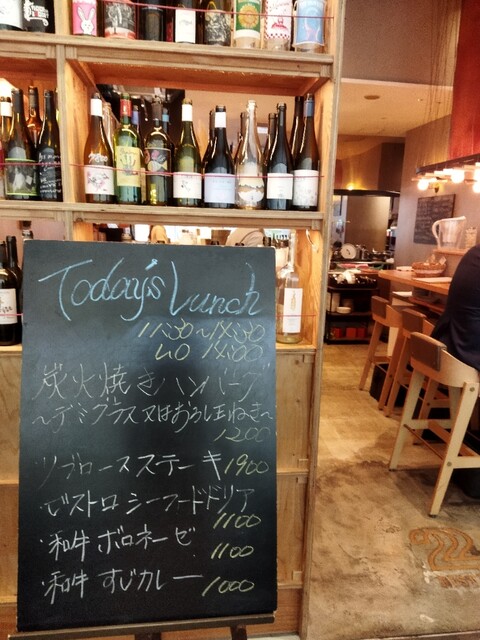 Today's Lunch
11:30~14:30
LO 14:00
炭火焼きハンバーグ
~デミグラス又はおろし玉ねぎ~
1200
リブロースステーキ 1900
・ビストロシーフードドリア
1100
・和牛 ボロネーゼ 1100
・和牛 すじカレー 1000